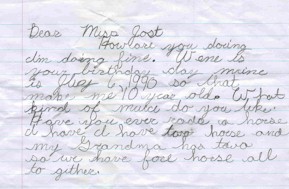 Dear Miss Jost
How are you doing
I'm doing fine. Wene is
your birthday day meine
is Sep 6 1090 so that
make me 10 year old. What
kind of music do you like.
Have you ever rode a horse
I have. I have two horse and
my Grandma has two
so we have foel horse all
to gither.